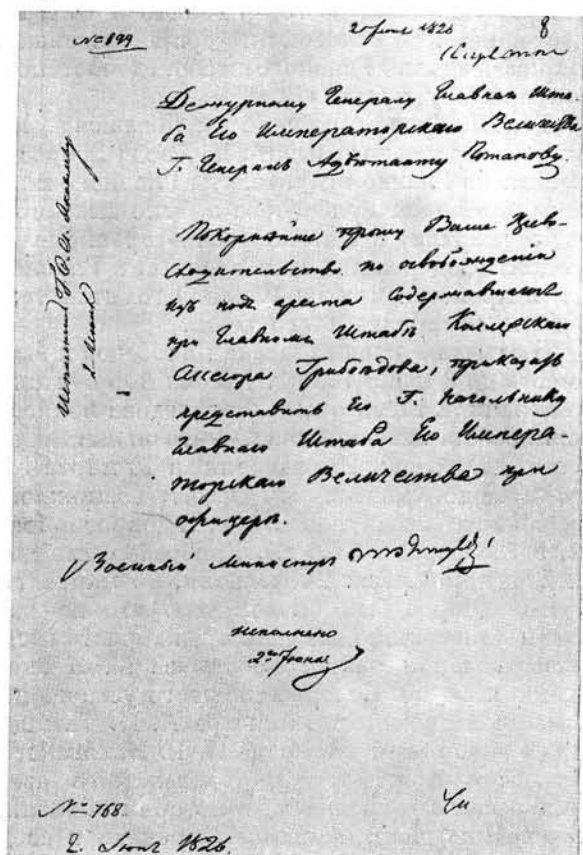 № 899
2 июня 1826
8
Дежурному Генералу Главнаго Шта-
ба Его Императорскаго Величества
Г. Генералъ Адъютанту Потапову.
Покорнѣйше прошу Ваше Прево-
сходительство по освобожденіи
изъ подъ ареста содержавшагося
при Главномъ Штабѣ Коллежскаго
Ассесора Грибоѣдова, приказать
представить Его Г. Начальнику
Главнаго Штаба Его Импера-
торскаго Величества при
офицерѣ.
Военный Министръ
исполнено
2го Июня
№ 768.
2. Июня 1826.